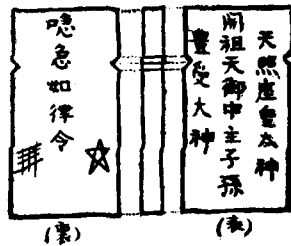 天照座皇太神
開祖天御中主子孫
豊受大神
(表)
噫急如律令
(裏)